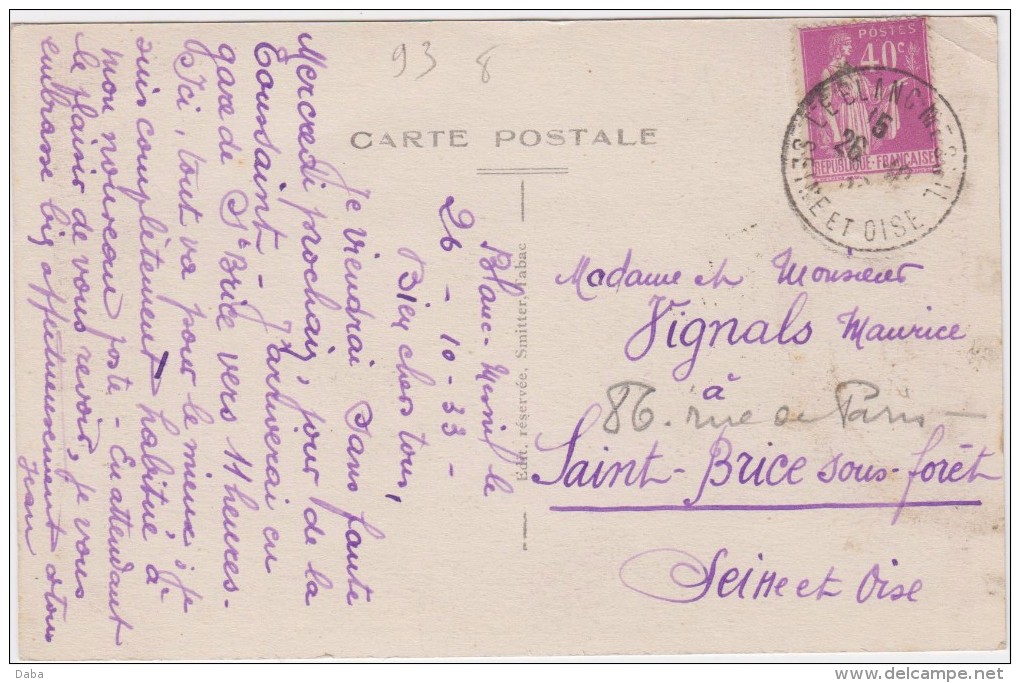 93 8
CARTE POSTALE
POSTES
40c
REPUBLIQUE-FRANÇAISE
LE BLANC MESNIL
SEINE ET OISE
15
26
Edit. réservée, Smitter, Tabac
Blanc-Mesnil le
26 - 10 - 33 -
Bien chers tous,
Je viendrai sans faute
Mercredi prochain, jour de la
Toussaint - J'arriverai en
gare de St Brice vers 11 heures.
Ici, tout va pour le mieux, je
suis complètement habitué à
mon nouveau poste - En attendant
le plaisir de vous revoir, je vous
embrasse bien affectueusement à tous
Jean
Madame et Monsieur
Vignals Maurice
à
86. rue de Paris -
Saint-Brice sous-forêt
Seine et Oise
Daba
www.delcampe.net